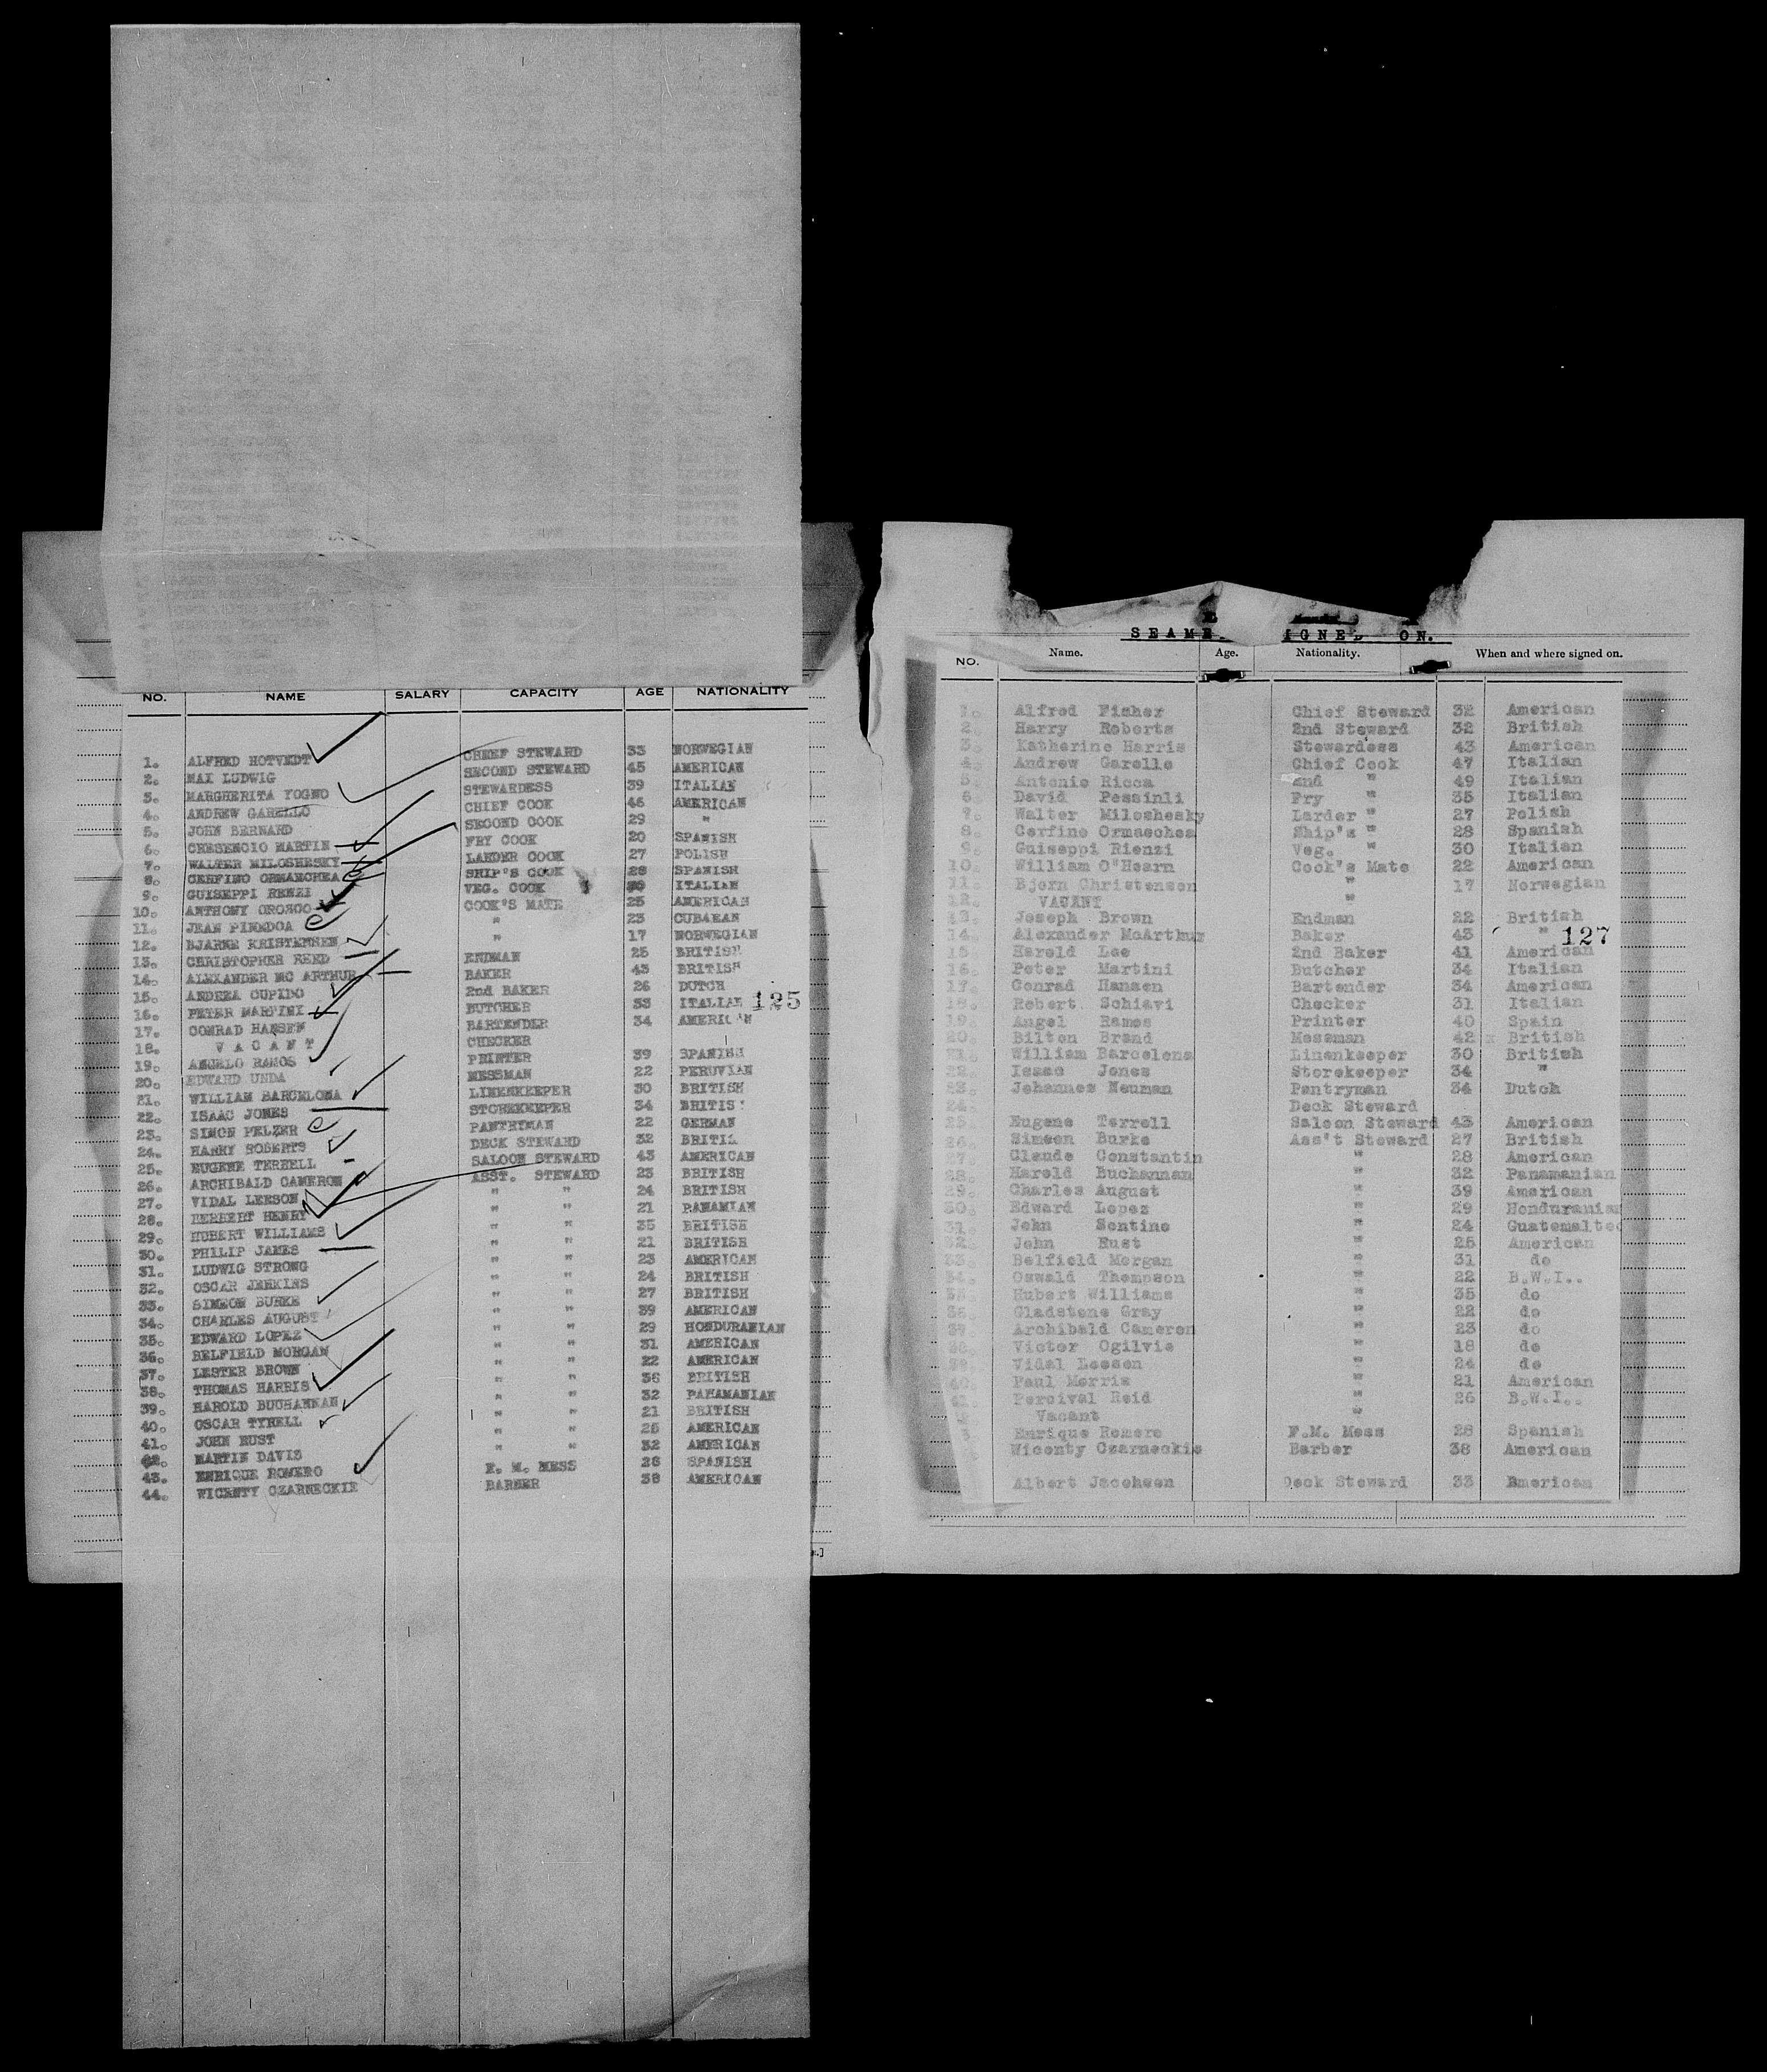 NO. NAME SALARY CAPACITY AGE NATIONALITY
1. ALFRED HOTVEDT CHIEF STEWARD 33 NORWEGIAN
2. MAX LUDWIG SECOND STEWARD 45 AMERICAN
3. MARGHERITA YOGNO STEWARDESS 39 ITALIAN
4. ANDREW GARELLO CHIEF COOK 46 AMERICAN
5. JOHN BERNARD SECOND COOK 29 "
6. CRESENCIO MARTIN FRY COOK 20 SPANISH
7. WALTER MILOSHESKY LARDER COOK 27 POLISH
8. CERFINO ORMAECHEA SHIP'S COOK 28 SPANISH
9. GUISEPPI RENZI VEG. COOK 30 ITALIAN
10. ANTHONY OROZCO COOK'S MATE 25 AMERICAN
11. JEAN " 23 CUBAEAN
12. BJARNE KRISTENSEN " 17 NORWEGIAN
13. CHRISTOPHER REED ENDMAN 25 BRITISH
14. ALEXANDER MC ARTHUR BAKER 43 BRITISH
15. ANDREA CUPIDO 2nd BAKER 26 DUTCH
16. PETER MARTINI BUTCHER 33 ITALIAN 125
17. CONRAD HANSEN BARTENDER 34 AMERICAN
18. V A C A N T CHECKER
19. ANGELO RAMOS PRINTER 39 SPANISH
20. EDWARD UNDA MESSMAN 22 PERUVIAN
21. WILLIAM BARCELONA LINENKEEPER 30 BRITISH
22. ISAAC JONES STOREKEEPER 34 BRITIS
23. SIMON PELZER PANTRYMAN 22 GERMAN
24. HARRY ROBERTS DECK STEWARD 32 BRITIS
25. EUGENE TERRELL SALOON STEWARD 43 AMERICAN
26. ARCHIBALD CAMERON ASST. STEWARD 23 BRITISH
27. VIDAL LEESON " " 24 BRITISH
28. HERBERT HENRY " " 21 PANAMIAN
29. HUBERT WILLIAMS " " 35 BRITISH
30. PHILIP JAMES " " 21 BRITISH
31. LUDWIG STRONG " " 23 AMERICAN
32. OSCAR JENKINS " " 24 BRITISH
33. SIMEON BURKE " " 27 BRITISH
34. CHARLES AUGUST " " 39 AMERICAN
35. EDWARD LOPEZ " " 29 HONDURANIAN
36. BELFIELD MORGAN " " 31 AMERICAN
37. LESTER BROWN " " 22 AMERICAN
38. THOMAS HARRIS " " 36 BRITISH
39. HAROLD BUCHANNAN " " 32 PANAMANIAN
40. OSCAR TYRELL " " 21 BRITISH
41. JOHN RUST " " 25 AMERICAN
42. MARTIN DAVIS " " 32 AMERICAN
43. ENRIQUE ROMERO F. M. MESS 28 SPANISH
44. WICENTY CZARNECKIE BARBER 38 AMERICAN
SEAME IGNED ON.
NO. Name. Age. Nationality. When and where signed on.
1. Alfred Fisher Chief Steward 32 American
2. Harry Roberts 2nd Steward 32 British
3. Katherine Harris Stewardess 43 American
4. Andrew Garello Chief Cook 47 Italian
5. Antonio Ricca 2nd " 49 Italian
6. David Pessinli Fry " 35 Italian
7. Walter Miloshesky Larder " 27 Polish
8. Cerfino Ormaechea Ship's " 28 Spanish
9. Guiseppi Rienzi Veg. " 30 Italian
10. William O"Hearn Cook's Mate 22 American
11. Bjorn Christensen " 17 Norwegian
12. VACANT "
13. Joseph Brown Endman 22 British
14. Alexander McArthur Baker 43 " 127
15. Harold Lee 2nd Baker 41 American
16. Peter Martini Butcher 34 Italian
17. Conrad Hansen Bartender 34 American
18. Robert Schiavi Checker 31 Italian
19. Angel Ramos Printer 40 Spain
20. Bilton Brand Messman 42 x British
21. William Barcelona Linenkeeper 30 British
22. Isaac Jones Storekeeper 34 "
23. Johannes Neuman Pantryman 34 Dutch
24. Deck Steward
25. Eugene Terrell Saloon Steward 43 American
26. Simeon Burke Ass't Steward 27 British
27. Claude Constantin " 28 American
28. Harold Buchannan " 32 Panamanian
29. Charles August " 39 American
30. Edward Lopez " 29 Honduranian
31. John Sentino " 24 Guatemaltec
32. John Rust " 25 American
33. Belfield Morgan " 31 do
34. Oswald Thompson " 22 B.W.I..
35. Hubert Williams " 35 do
36. Gladstone Gray " 22 do
37. Archibald Cameron " 23 do
38. Victor Ogilvie " 18 do
39. Vidal Leeson " 24 do
40. Paul Morris " 21 American
41. Percival Reid " 26 B.W.I..
Vacant "
3 Enrique Romero F.M. Mess 28 Spanish
Wicenty Czarneckie Barber 38 American
Albert Jacobsen Deck Steward 33 Bmerican